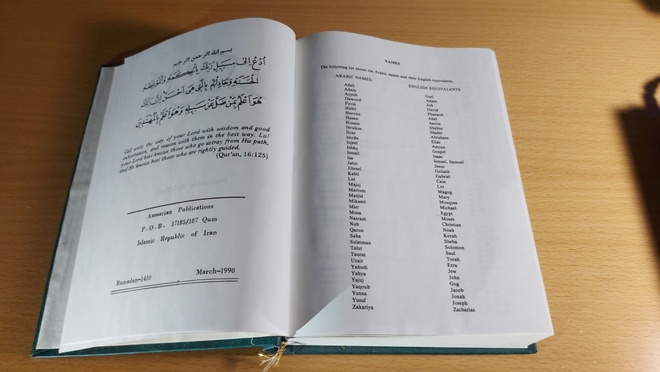 بسم الله الرحمن الرحيم
أُدْعُ إِلَى سَبِيلِ رَبِّكَ بِالْحِكْمَةِ وَالْمَوْعِظَةِ
الْحَسَنَةِ وَجَادِلْهُمْ بِالَّتِي هِيَ أَحْسَنُ إِنَّ رَبَّكَ
هُوَ أَعْلَمُ بِمَنْ ضَلَّ عَنْ سَبِيلِهِ وَهُوَ أَعْلَمُ بِالْمُهْتَدِينَ
Call unto the way of your Lord with wisdom and good
exhortation, and reason with them in the best way. Lo!
your Lord best knows those who go astray from His path,
and He knows best those who are rightly guided.
(Qur'an, 16:125)
Ansariyan Publications
P.O.B. 37185/187 Qum
Islamic Republic of Iran
Ramadan-1410 March-1990
NAMES
The following list shows the Arabic names and their English equivalents.
ARABIC NAMES ENGLISH EQUIVALENTS
Allah God
Adam Adam
Ayyub Job
Dawood David
Firon Pharaoh
Habil Abel
Haroon Aaron
Hasan Shabar
Husain Shabir
Ibrahim Abraham
Ilyas Elias
Imran Amran
Injeel Gospel
Ishaq Isaac
Ismail Ismael, Samuel
Isa Jesus
Jalut Goliath
Jibreel Gabriel
Kabil Cain
Lut Lot
Majuj Magog
Marium Mary
Masjid Mosques
Mikaeel Michael
Misr Egypt
Musa Moses
Nasrani Christian
Nuh Noah
Qarun Korah
Saba Sheba
Sulaiman Solomon
Talut Saul
Taurat Torah
Uzair Ezra
Yahudi Jew
Yahya John
Yajuj Gog
Yaqoub Jacob
Yunus Jonah
Yusuf Joseph
Zakariya Zacharias